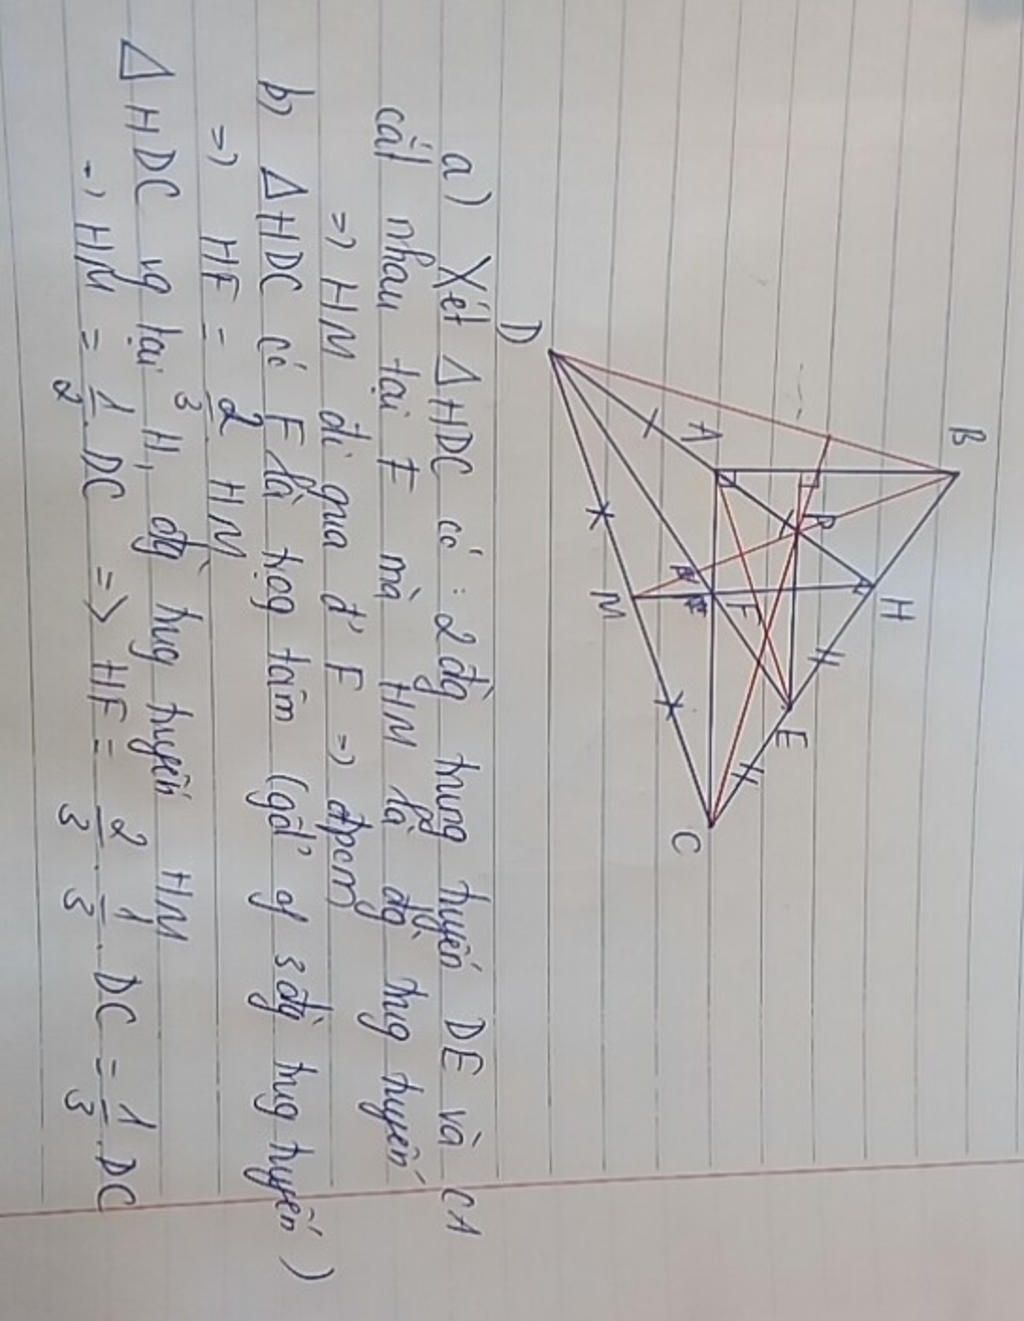 B
H
A
P
E
F
D
M
C
a) Xét Δ HDC có : 2 đg trung tuyến DE và CA
cắt nhau tại F mà HM là đg trug tuyến
=> HM đi qua đ' F => đpcm
b) Δ HDC có F là trọg tâm (gđ' of 3 đg trug tuyến)
=> HF = 2/3 HM
Δ HDC vg tại H, đg trug tuyến HM
=> HM = 1/2 DC => HF = 2/3 . 1/3 . DC = 1/3 . DC